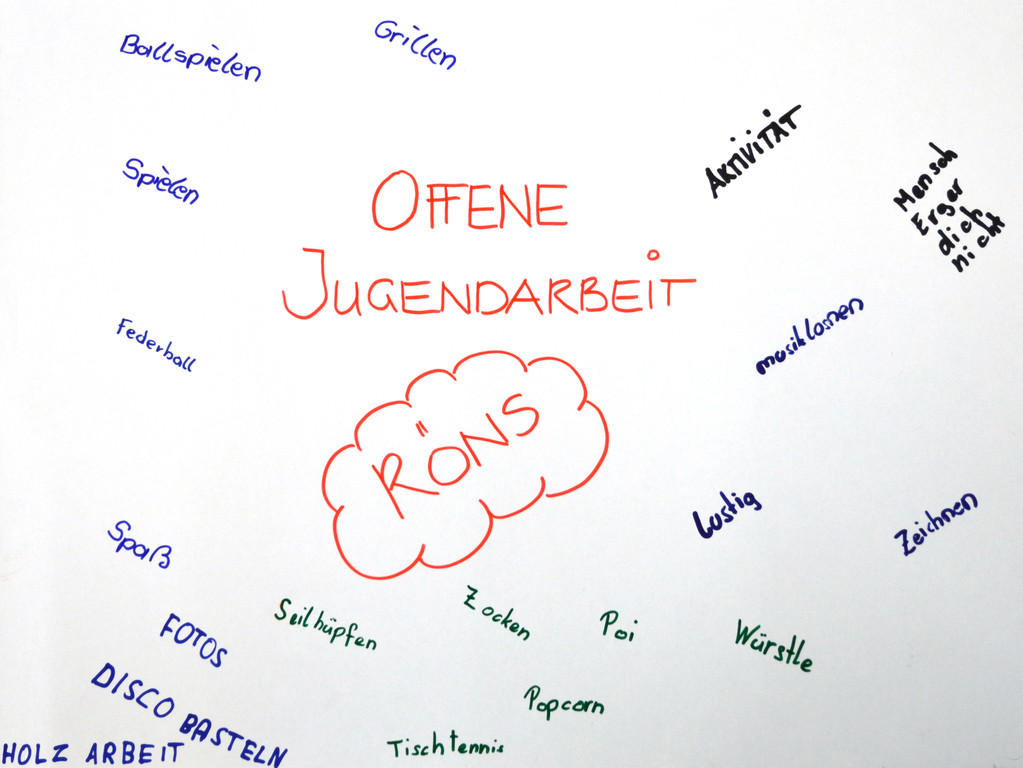 Ballspielen
Grillen
AKTIVITÄT
Mensch
Erger
dich
nicht
Spielen
OFFENE
JUGENDARBEIT
Federball
musiklosnen
RÖNS
Lustig
Zeichnen
Spaß
Seilhüpfen
Zocken
Poi
Würstle
FOTOS
DISCO BASTELN
Popcorn
HOLZ ARBEIT
Tischtennis